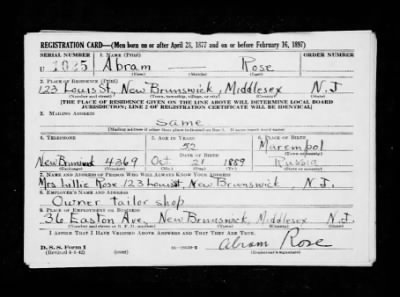 REGISTRATION CARD—(Men born on or after April 28, 1877 and on or before February 16, 1897)
SERIAL NUMBER 1. NAME (Print) ORDER NUMBER
U 1025 Abram — Rose
(First) (Middle) (Last)
2. PLACE OF RESIDENCE (Print)
123 Louis St, New Brunswick, Middlesex N.J
(Number and street) (Town, township, village, or city) (County) (State)
[THE PLACE OF RESIDENCE GIVEN ON THE LINE ABOVE WILL DETERMINE LOCAL BOARD
JURISDICTION; LINE 2 OF REGISTRATION CERTIFICATE WILL BE IDENTICAL]
3. MAILING ADDRESS
Same
[Mailing address if other than place indicated on line 2. If same insert word same]
4. TELEPHONE 5. AGE IN YEARS 6. PLACE OF BIRTH
52 Marempol
DATE OF BIRTH (Town or county)
New Brunswick 4369 Oct 21 1889 Russia
(Exchange) (Number) (Mo.) (Day) (Yr.) (State or country)
7. NAME AND ADDRESS OF PERSON WHO WILL ALWAYS KNOW YOUR ADDRESS
Mrs Lillie Rose 123 Louis St, New Brunswick, N.J.
8. EMPLOYER'S NAME AND ADDRESS
Owner tailor shop
9. PLACE OF EMPLOYMENT OR BUSINESS
36 Easton Ave, New Brunswick, Middlesex N.J.
(Number and street or R. F. D. number) (Town) (County) (State)
I AFFIRM THAT I HAVE VERIFIED ABOVE ANSWERS AND THAT THEY ARE TRUE.
D. S. S. Form 1
(Revised 4-1-42) (over) Abram Rose
(Registrant's signature)